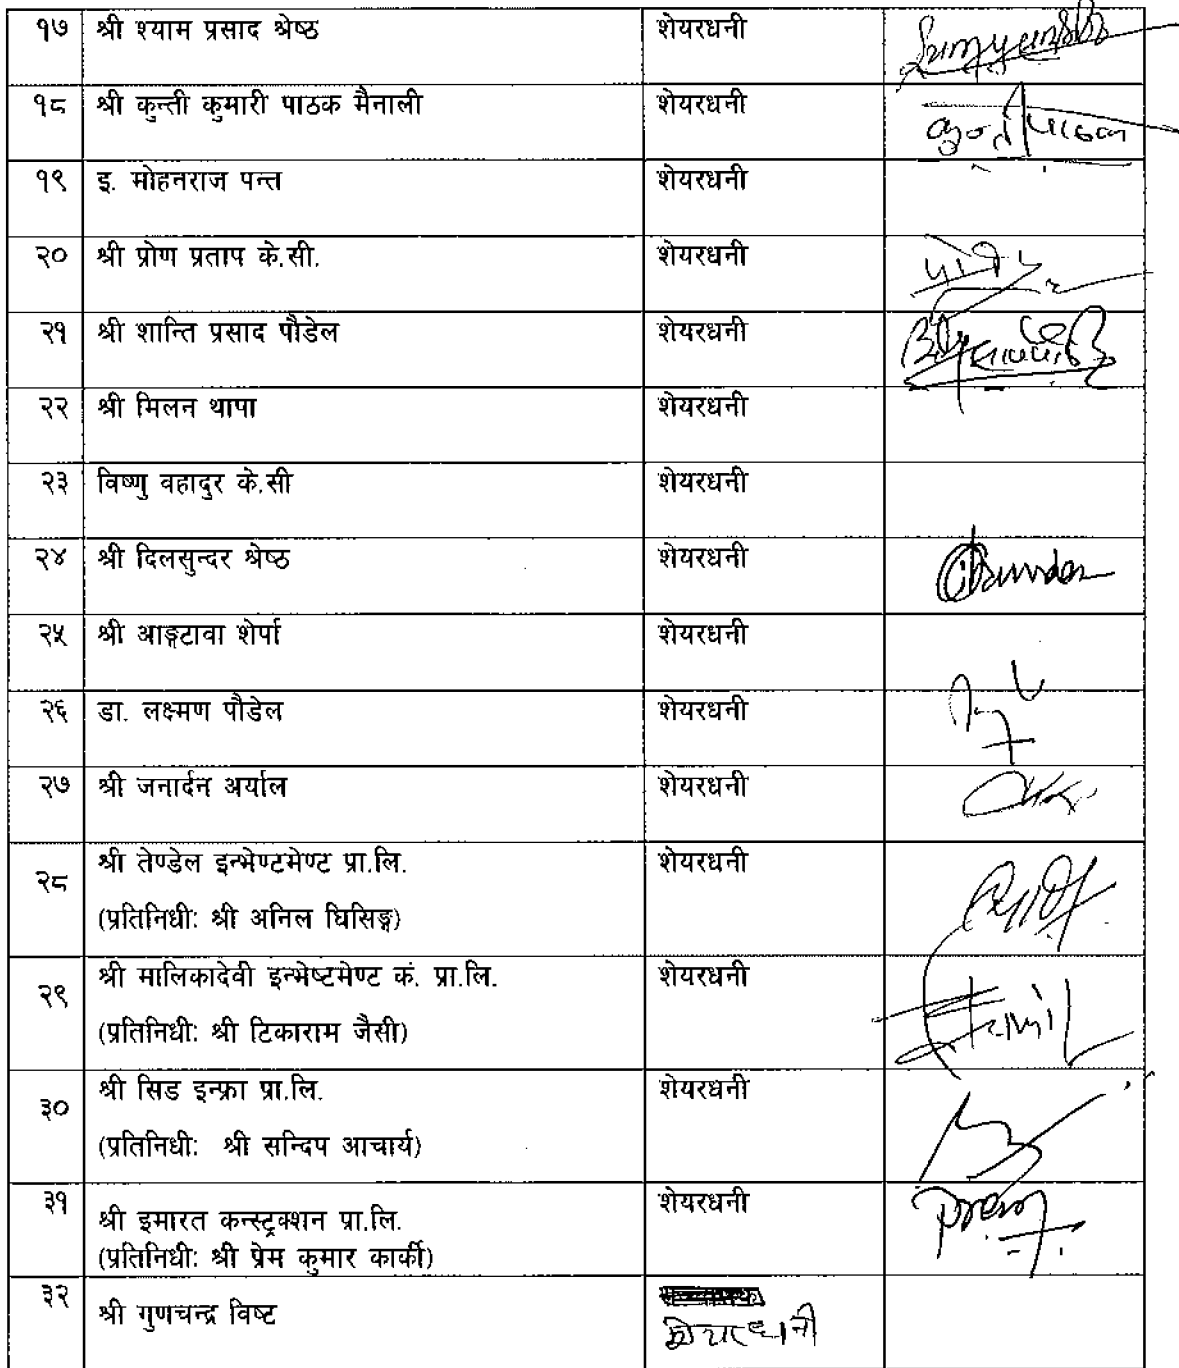 १७ श्री श्याम प्रसाद श्रेष्ठ शेयरधनी
१८ श्री कुन्ती कुमारी पाठक मैनाली शेयरधनी कुन्ती पाठक
१९ इ. मोहनराज पन्त शेयरधनी
२० श्री प्रोण प्रताप के.सी. शेयरधनी
२१ श्री शान्ति प्रसाद पौडेल शेयरधनी
२२ श्री मिलन थापा शेयरधनी
२३ विष्णु वहादुर के.सी शेयरधनी
२४ श्री दिलसुन्दर श्रेष्ठ शेयरधनी
२५ श्री आङ्गटावा शेर्पा शेयरधनी
२६ डा. लक्ष्मण पौडेल शेयरधनी
२७ श्री जनार्दन अर्याल शेयरधनी
२८ श्री तेण्डेल इन्भेण्टमेण्ट प्रा.लि. शेयरधनी
(प्रतिनिधी: श्री अनिल घिसिङ्ग)
२९ श्री मालिकादेवी इन्भेष्टमेण्ट कं. प्रा.लि. शेयरधनी
(प्रतिनिधी: श्री टिकाराम जैसी)
३० श्री सिड इन्फ्रा प्रा.लि. शेयरधनी
(प्रतिनिधी: श्री सन्दिप आचार्य)
३१ श्री इमारत कन्स्ट्रक्शन प्रा.लि. शेयरधनी Prem
(प्रतिनिधी: श्री प्रेम कुमार कार्की)
३२ श्री गुणचन्द्र विष्ट शेयरधनी